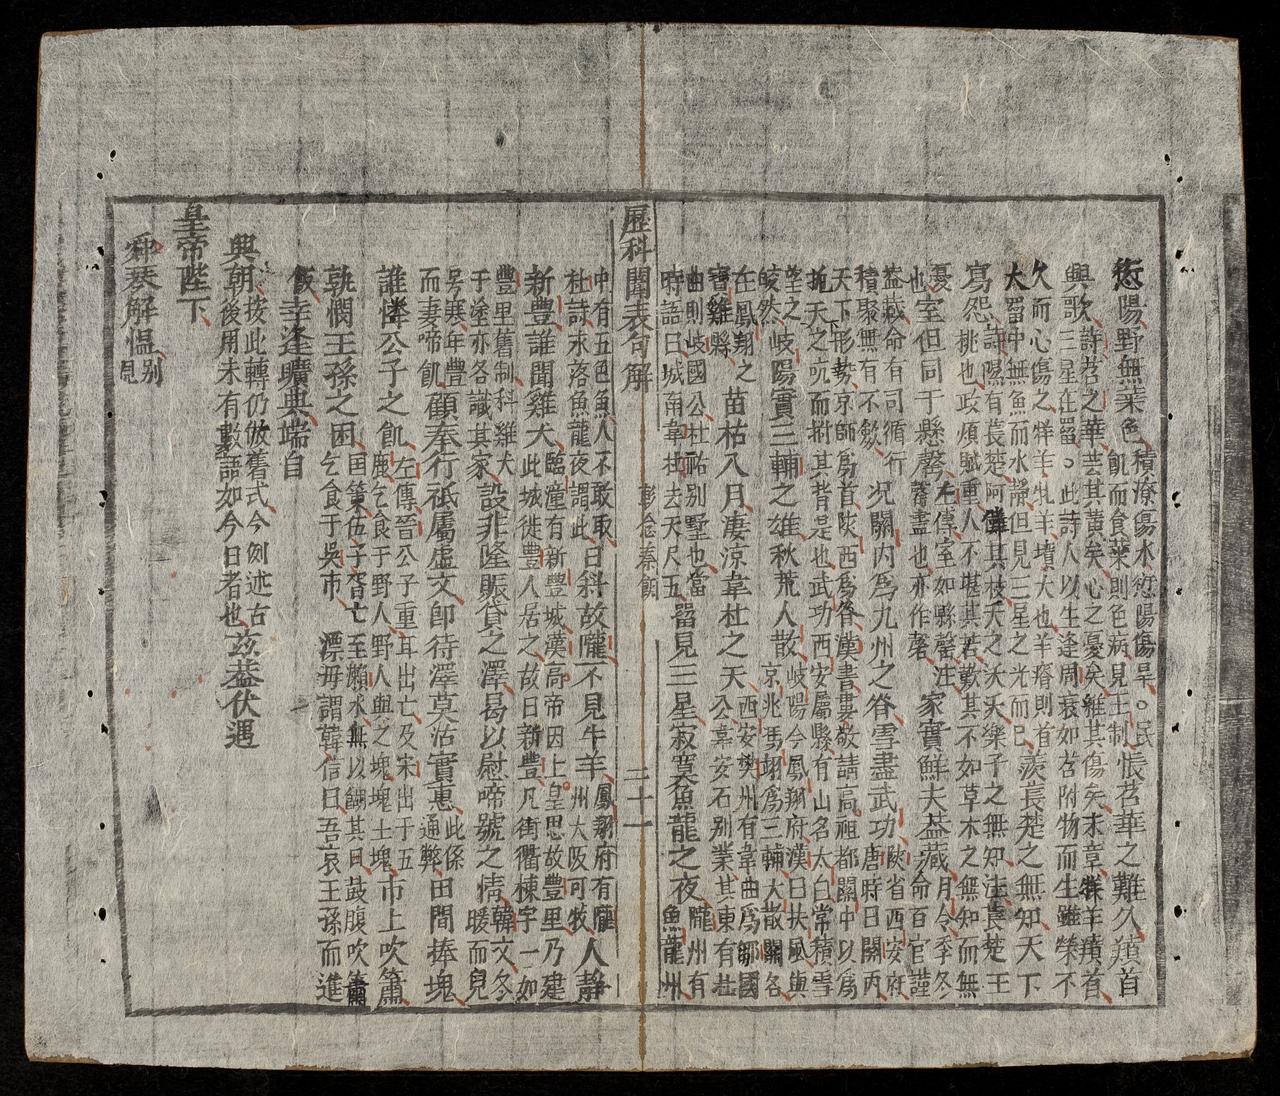 愆陽野無菜色積潦傷水愆陽傷旱。民
飢而食菜則色病見王制悵苕華之難久羵首
興歌詩苕之華芸其黃矣心之憂矣維其傷矣末章牂羊羵首
三星在罶。此詩人以生逢周衰如苕附物而生雖榮不
久而心傷之牂羊牝羊墳大也羊瘠則首
大罶中無魚而水靜但見三星之光而已羨萇楚之無知天下
寫怨詩隰有萇楚阿儺其枝夭之沃沃樂子之無知注萇楚王
桃也政煩賦重人不堪其苦歎其不如草木之無知而無
憂
也室但同于懸磬左傳室如縣罄注
罄盡也亦作磬家實鮮夫蓋藏月令季冬
命百官謹
蓋蔵命有司循行
積聚無有不歛況關内爲九州之脊雪盡武功陝省西安府
唐時曰關内
天下形勢京師爲首陝西爲脊漢書婁敬請高祖都關中以爲
扼天之吭而拊其背是也武功西安屬縣有山名太白常積雪
望之
皎然岐陽實三輔之雄秋荒人散岐陽今鳳翔府漢曰扶風與
京兆馮翊爲三輔大散關各
在鳳翔之
寶雞縣苗枯入月凄涼韋杜之天西安樊州有韋曲爲鄒國
公韋安石別業其東有杜
曲則岐國公杜祐別墅也當
時語曰城南韋杜去天尺五罶見三星寂寞魚龍之夜隴州有
魚龍州
歷科聞表句解
二十一
中有五色魚人不敢取
杜詩水落魚龍夜謂此日斜故隴不見牛羊鳳翔府有隴
州大阪可牧人靜
新豐誰聞雞犬臨潼有新豐城漢高帝因上皇思故豐里乃建
此城徙豐人居之故曰新豐凡街衢棟宇一如
豐里舊制科雞犬
于塗亦各識其家設非隆賑貸之澤曷以慰啼號之情韓文冬
暖而兒
号寒年豐
而妻啼飢顧奉行祗屬虛文卽待澤莫沾實惠此係
通弊田間捧塊
誰憐公子之飢左傳晉公子重耳出亡及宋出于五
鹿乞食于野人野人與之塊塊土塊市上吹簫
孰憫王孫之困國策伍子胥亡至瀨水無以餬其口鼓腹吹簫
乞食于吳市 漂毋謂韓信曰吾哀王孫而進
飯幸逢曠典端自
興朝按此轉仍倣舊式今例述古
後用未有數語如今日者也茲蓋伏遇
皇帝陛下
舜琴解慍别
見